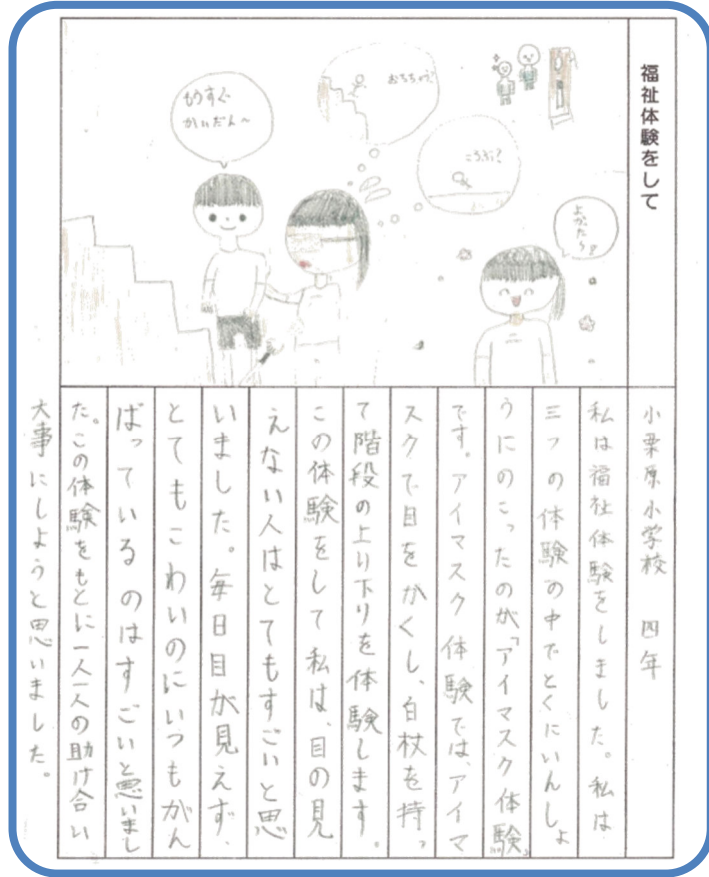 福祉体験をして
もうすぐ
かいだん～
おちちゃう?
こうぶつ?
よかったう?
小栗原小学校　四年
私は福祉体験をしました。私は
三つの体験の中でとくにいんしょ
うにのこったのが「アイマスク体験」
です。アイマスク体験では、アイマ
スクで目をかくし、白杖を持っ
て階段の上り下りを体験します。
この体験をして私は、目の見
えない人はとてもすごいと思
いました。毎日目が見えず、
とてもこわいのにいつもがん
ばっているのはすごいと思いまし
た。この体験をもとに一人一人の助け合い
大事にしようと思いました。